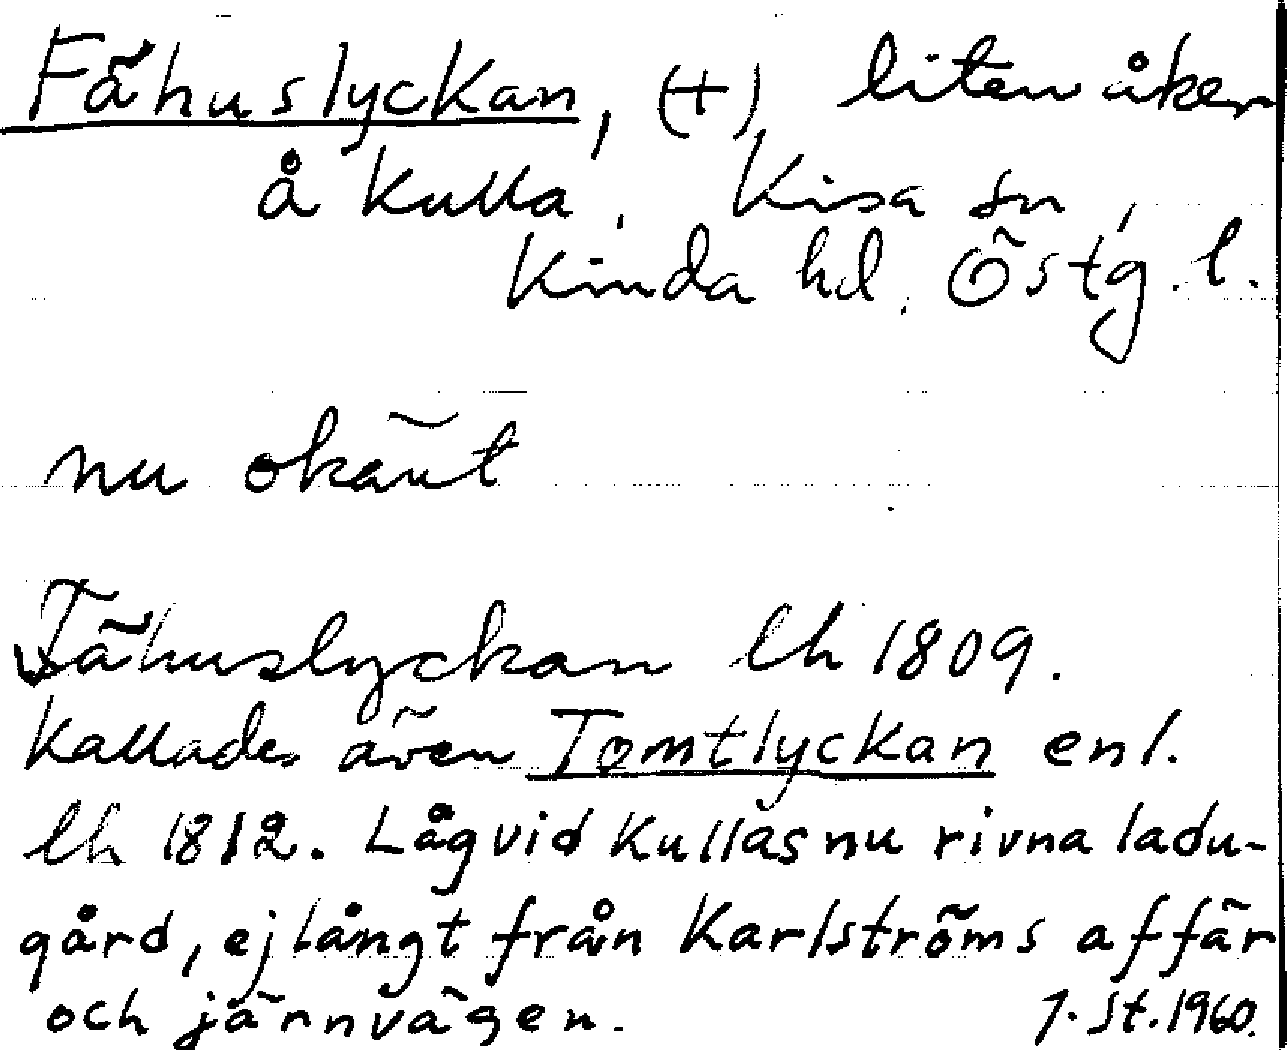 Fähuslyckan, (+) liten åker
å Kulla, Kisa sn,
Kinda hd, Östg. l.
nu okänt
Fähuslyckan lh 1809.
Kallades även Tomtlyckan enl.
lh 1812. Låg vid Kullas nu rivna ladu-
gård, ej långt från Karlströms affär
och järnvägen.
J. St. 1960.